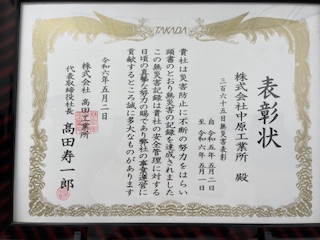 TAKADA
表彰状
株式会社中原工業所 殿
三百六十五日無災害表彰
自 令和五年五月二日
至 令和六年五月一日
貴社は災害防止に不断の努力をはらい
頭書のとおり無災害の記録を達成されました
この無災害記録は貴社の安全管理に対する
日頃の真摯な努力の賜であり弊社の事業運営に
貢献するところ誠に多大なものがあります
令和六年五月二日
株式会社 高田工業所
代表取締役社長 髙田寿一郎